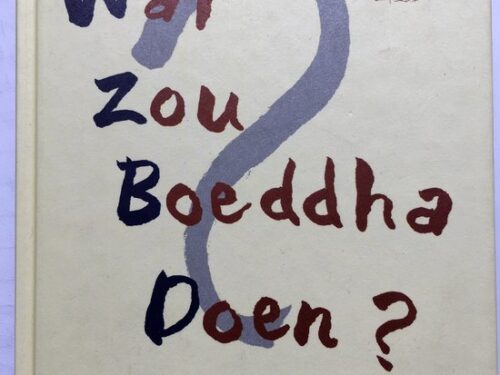 Wat
Zou
Boeddha
Doen?